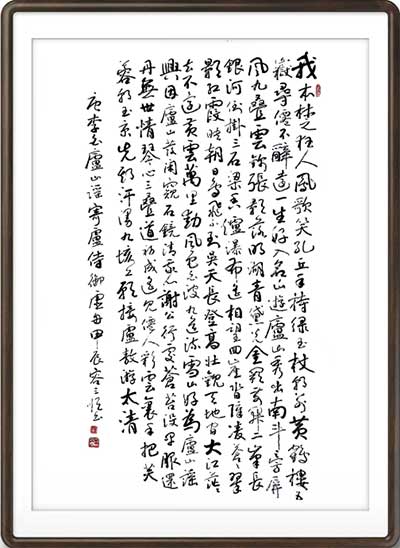 我本楚狂人鳳歌笑孔丘手持綠玉杖朝別黃鶴樓五
嶽尋僊不辭遠一生好入名山遊廬山秀出南斗旁屏
風九疊雲錦張影落明湖青黛光金闕前開二峯長
銀河倒掛三石梁香爐瀑布遙相望迴崖沓障凌蒼蒼翠
影紅霞映朝日鳥飛不到吳天長登高壯觀天地間大江茫茫
去不還黃雲萬里動風色白波九道流雪山好為廬山謠
興因廬山發閑窺石鏡清我心謝公行處蒼苔沒早服還
丹無世情琴心三疊道初成遙見僊人彩雲裏手把芙
蓉朝玉京先期汗漫九垓上願接盧敖遊太清
唐李白廬山謠寄盧侍御虛舟甲辰